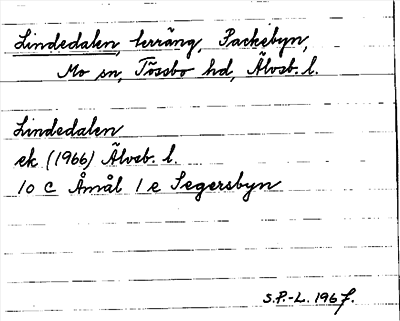 Lindedalen, terräng, Packebyn,
Mo sn, Tössbo hd, Älvsb. l.
Lindedalen
ek (1966) Älvsb. l.
10 C Åmål 1 e Segersbyn
S.P.-L. 1967.